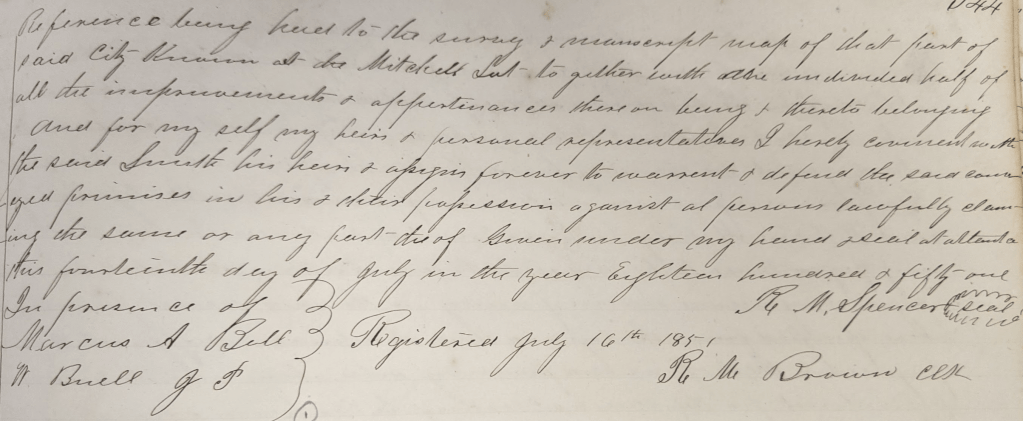 544
Reference being had to the survey & manuscript map of that part of
said City Known as the Mitchell Lot to gether with the undivided half of
all the improvements & appertinances thereon being & thereto belonging
And for my self my heirs & personal representatives I hereby covinent with
the said Smith his heirs & assigns forever to warrent & defend the said conv
eyed primises in his & their possession against al persons lawfully claim
ing the same or any part the of Given under my hand & seal at atlanta
this fourteinth day of July in the year Eighteen hundred & fifty one
In presence of R. M. Spencer seal
Marcus A Bell Registered July 16th 1851
W Buell J P R M Brown Clk